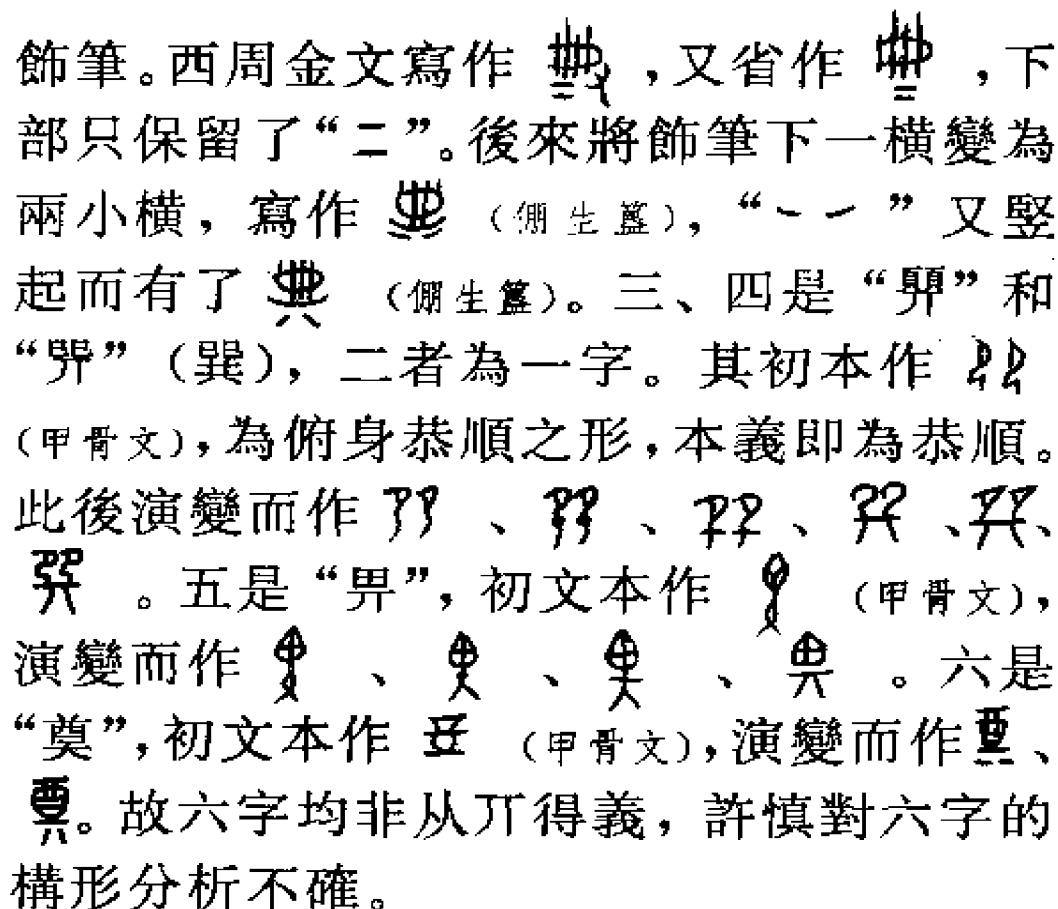 飾筆。西周金文寫作 ，又省作 ，下
部只保留了“二”。後來將飾筆下一橫變為
兩小橫，寫作 （倗生簋），“ ”又竪
起而有了 （倗生簋）。三、四是“顨”和
“巺”（巽），二者為一字。其初本作
（甲骨文），為俯身恭順之形，本義即為恭順。
此後演變而作 、 、 、 、 、
 。五是“畀”，初文本作 （甲骨文），
演變而作 、 、 、 。六是
“奠”，初文本作 （甲骨文），演變而作 、
 。故六字均非从丌得義，許慎對六字的
構形分析不確。